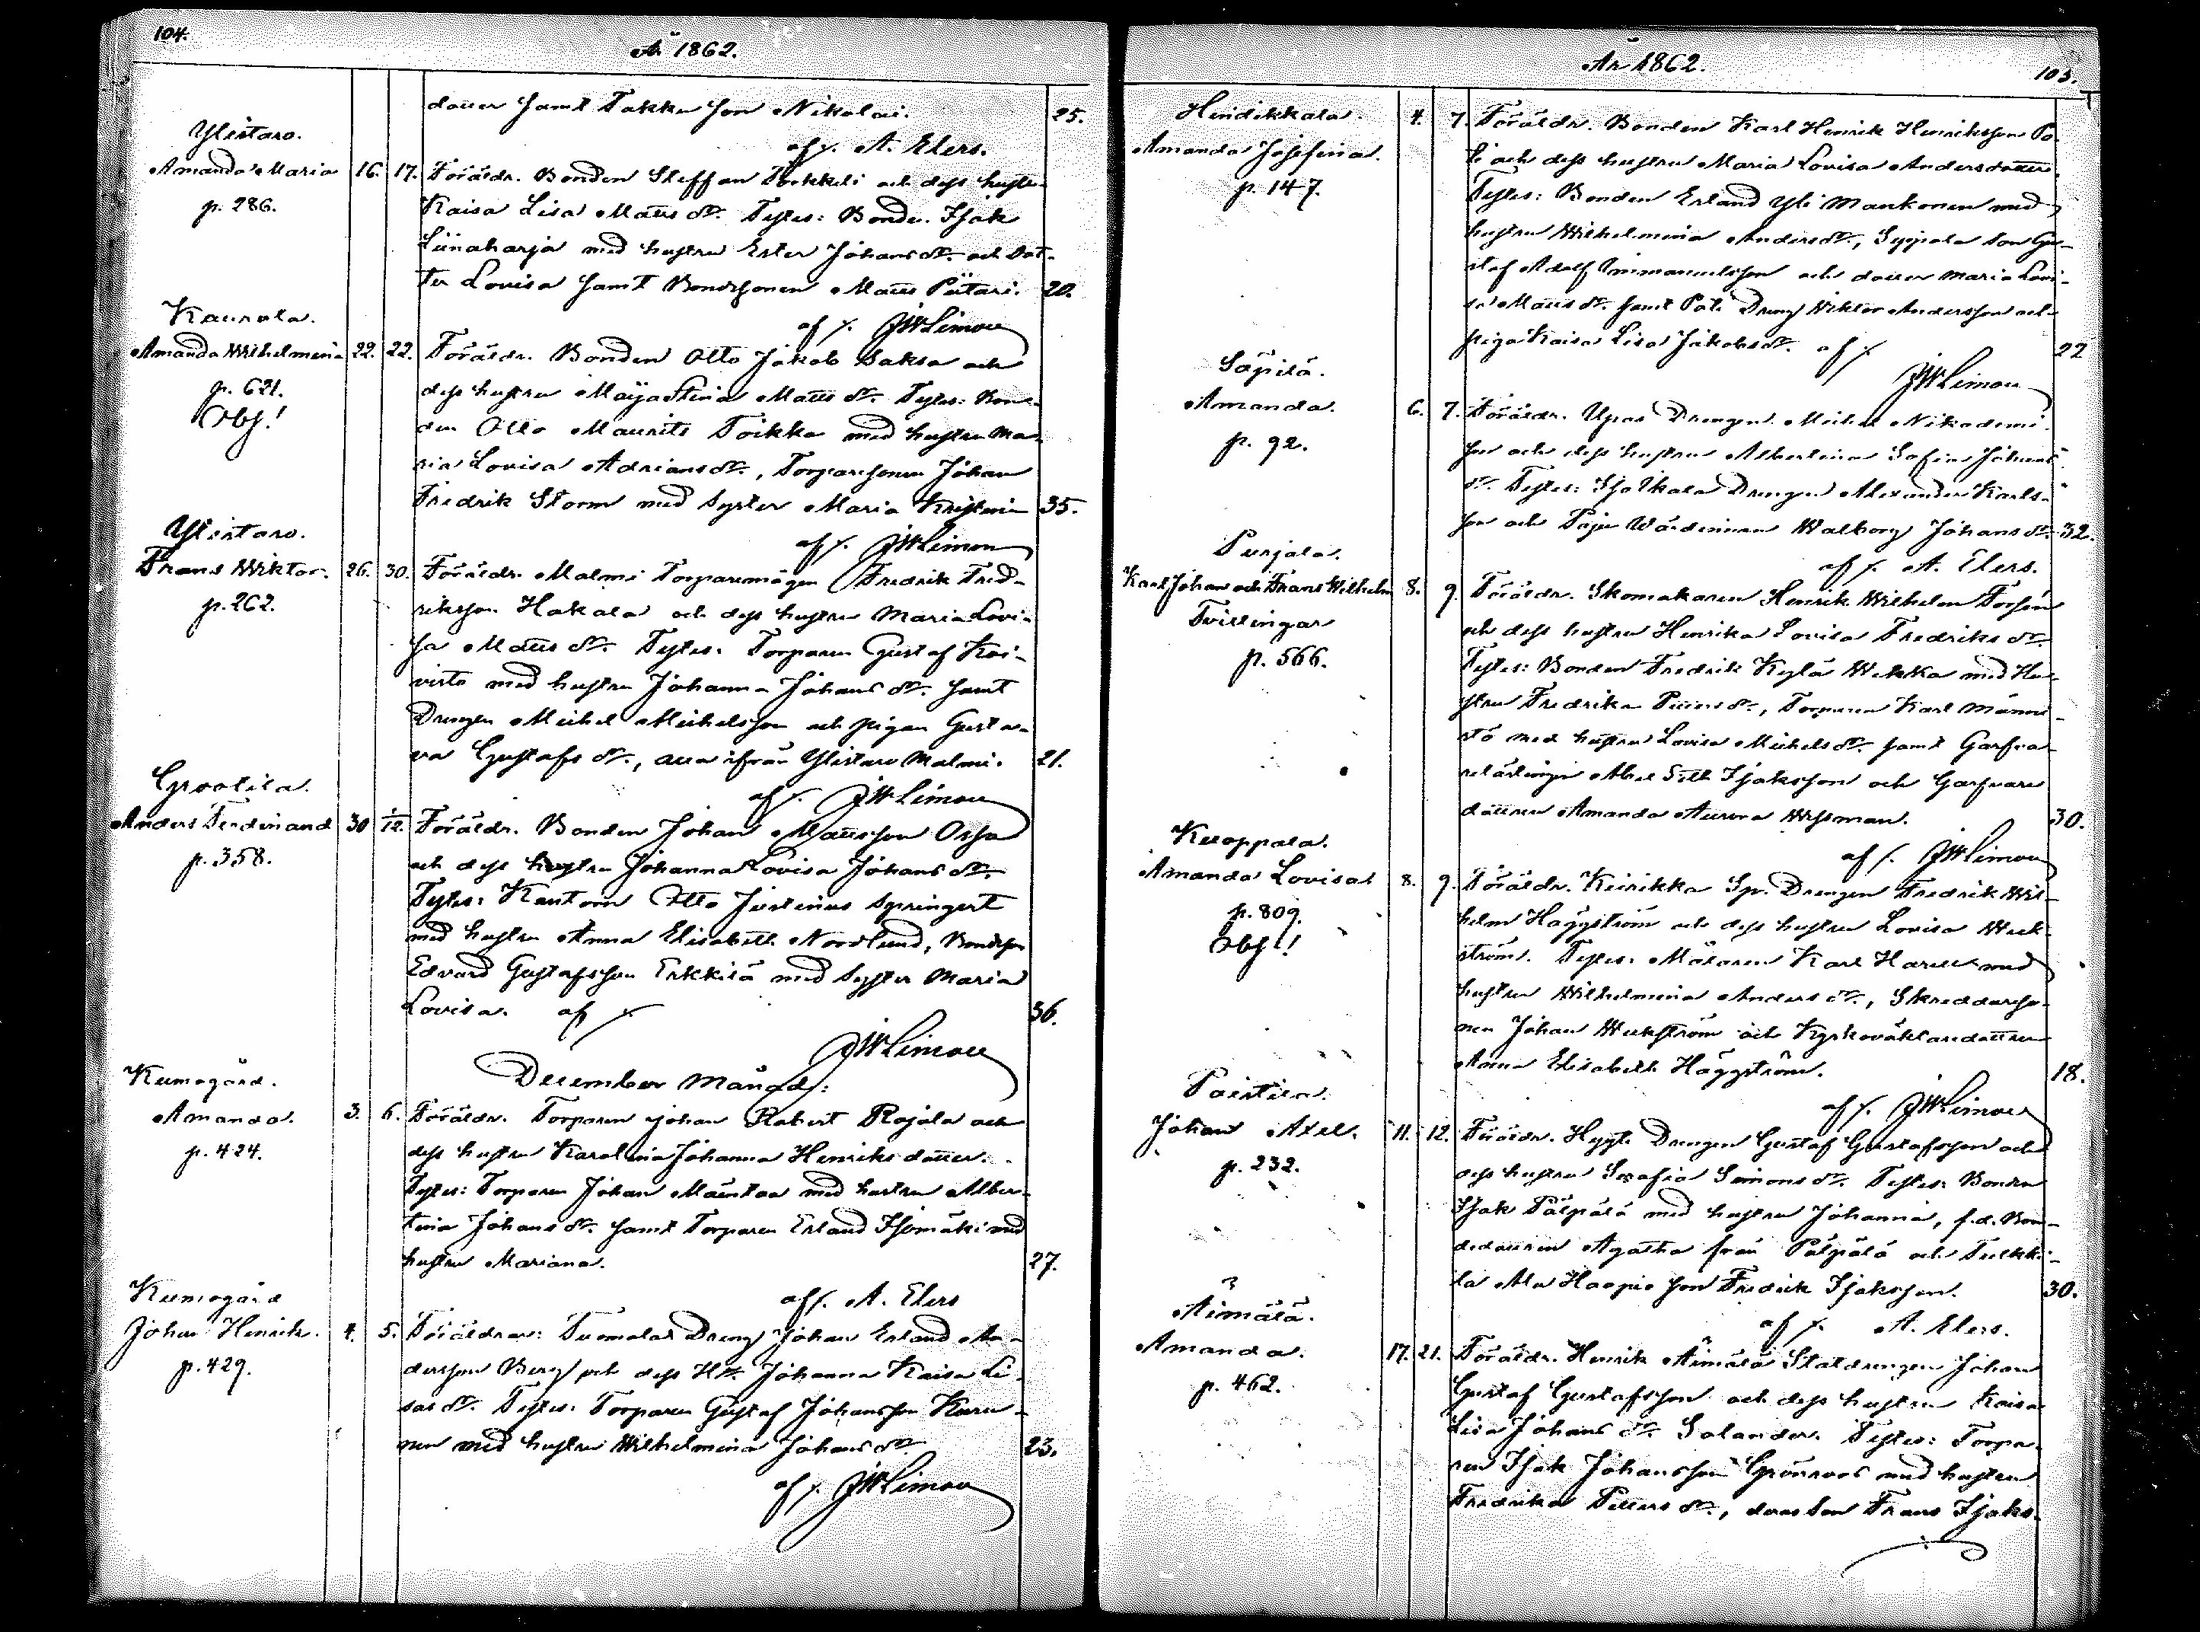 104.
År 1862.
dotter samt Takku son Nikolai. 25.
af. A. Elers.
Ylistaro.
Amanda Maria 16. 17. Föräldr. Bonden Steffan och dess hustru
p. 286.
Kaisa Lisa Matts dr. Testes: Bonden Isak
Liinaharja med hustru Ester Johans dr. och dot-
ter Lovisa samt Bondsonen Matts Pätäri. 20.
af. JWLimon
Kaurola.
Amanda Wilhelmina 22. 22. Föräldr. Bonden Otto Jakob Saksa och
p. 621.
Obs!
dess hustru Maija Stina Matts dr. Testes: Bon-
den Otto Maurits Toikka med hustru Ma-
ria Lovisa Adrians dr., Torparesonen Johan
Fredrik Storm med syster Maria Kristina 35.
af. JWLimon
Ylistaro.
Frans Wiktor. 26. 30. Föräldr. Malmi Torparemågen Fredrik Fred-
p. 262.
riksson Hakala och dess hustru Maria Lovi-
sa Matts dr. Testes: Torparen Gustaf Koi-
visto med hustru Johanna Johans dr. samt
Drengen Michel Michelsson och pigan Gusta-
va Gustafs dr., alla ifrån Ylistaro Malmi. 21.
af. JWLimon
Grootila.
Anders Ferdinand 30 1/12. Föräldr. Bonden Johan Mattsson Ossa
p. 358.
och dess hustru Johanna Lovisa Johans dr.
Testes: Kantorn Otto Justinus Springert
med hustru Anna Elisabeth Nordlund, Bondeson
Edvard Gustafsson Erkkilä med syster Maria
Lovisa. af. 36.
JWLimon
December Månad:
Kumogård.
Amanda. 3. 6. Föräldr. Torparen Johan Robert Rojala och
p. 424.
dess hustru Karolina Johanna Henriks dotter.
Testes: Torparen Johan Mäntaa med hustru Alber-
tina Johans dr. samt Torparen Erland Isomäki med
hustru Mariana. 27.
af. A. Elers
Kumogård
Johan Henrik. 4. 5. Föräldrar: Tuomolas Dreng Johan Erland An-
p. 429.
dersson Berg och dess H. Johanna Kaisa Li-
sas dr. Testes: Torparen Gustaf Johansson
med hustru Wilhelmina Johans dr. 23.
af. JWLimon
År 1862.
105.
Hindikkala.
Amanda Josefina. 4. 7. Föräldr. Bonden Karl Henrik Henriksson Po-
p. 147.
li och dess hustru Maria Lovisa Andersdotter.
Testes: Bonden Erland Yli Mankonen med
hustru Wilhelmina Anders dr., Syppola son Gu-
staf Adolf Immanuelsson och dotter Maria Lovi-
sa Matts dr. samt Poli Dreng Wiktor Andersson och
piga Kaisa Lisa Jakobs dr. af. 22
JWLimon
Säpilä.
Amanda. 6. 7. Föräldr. Upas Drengen Michel Nikodemi
p. 92.
son och dess hustru Albertina Sofia Johans
dr. Testes: Drengen Alexander Karls-
son och Walborg Johans dr. 32.
af. A. Elers.
Purjala.
Karl Johan och Frans Wilhelm 8. 9. Föräldr. Skomakaren Henrik Wilhelm Forsén
Tvillingar
p. 566.
och dess hustru Henrika Lovisa Fredriks dr.
Testes: Bonden Fredrik Kylä Wekka med Hu-
stru Fredrika Petters dr., Torparen Karl Männi-
stö med hustru Lovisa Michels dr. samt Garfva-
relärlingen Abel Seth Isaksson och Garfvare
dottren Amanda Aurora Wessman. 30.
af. JWLimon
Kuoppala.
Amanda Lovisa 8. 9. Föräldr. Keirikka Sp. Drengen Fredrik Wil-
p. 809.
Obs!
helm Häggström och dess hustru Lovisa Wek-
ström. Testes: Målaren Karl Harell med
hustru Wilhelmina Anders dr., Skreddareso-
nen Johan Wekström och Kyrkoväktaredottren
Anna Elisabeth Häggström. 18.
af. JWLimon
Paistila.
Johan Axel. 11. 12. Föräldr. Hyyti Drengen Gustaf Gustafsson och
p. 232.
dess hustru Serafia Simons dr. Testes: Bonden
Isak Pälpälä med hustru Johanna, f.d. Bon-
dedottren Agatha från Pälpälä och Tulkki-
la Ala Haapio son Fredrik Isaksson. 30.
af. A. Elers.
Äimälä.
Amanda. 17. 21. Föräldr. Henrik Äimälä Statdrengen Johan
p. 462.
Gustaf Gustafsson och dess hustru Kaisa
Lisa Johans dr. Salander. Testes: Torpa-
ren Isak Johansson Grönroos med hustru
Fredrika Petters dr., deras Son Frans Isaks-